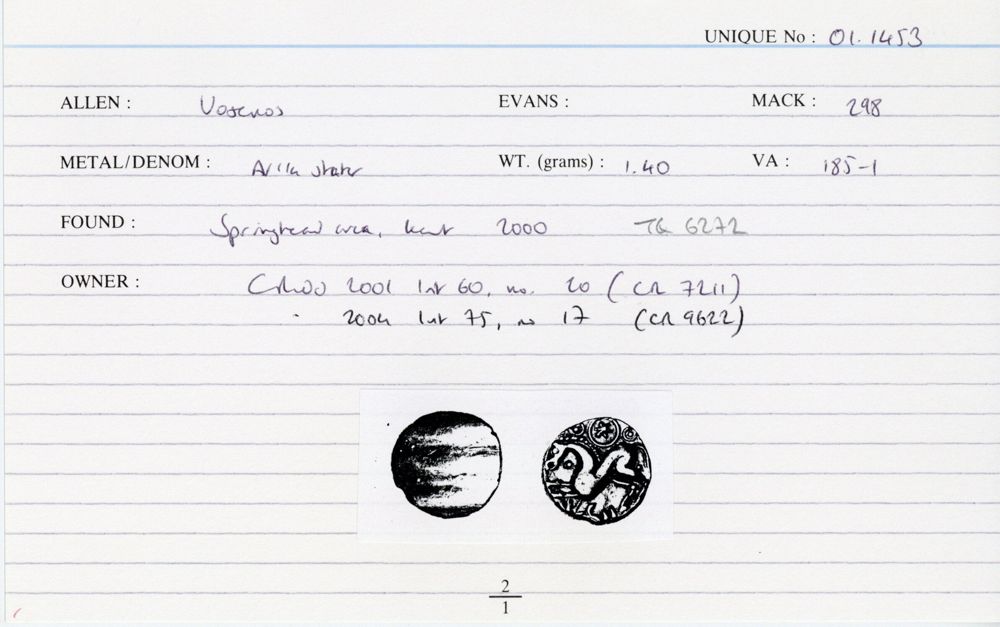 UNIQUE No : 01.1453
ALLEN : Vosenos EVANS : MACK : 298
METAL/DENOM : AV 1/4 stater WT. (grams) : 1.40 VA : 185-1
FOUND : Springhead area, Kent 2000 TQ 6272
OWNER : 2001 list 60, no. 20 (CR 7211)
2004 list 75, no 17 (CR 9622)
2
1